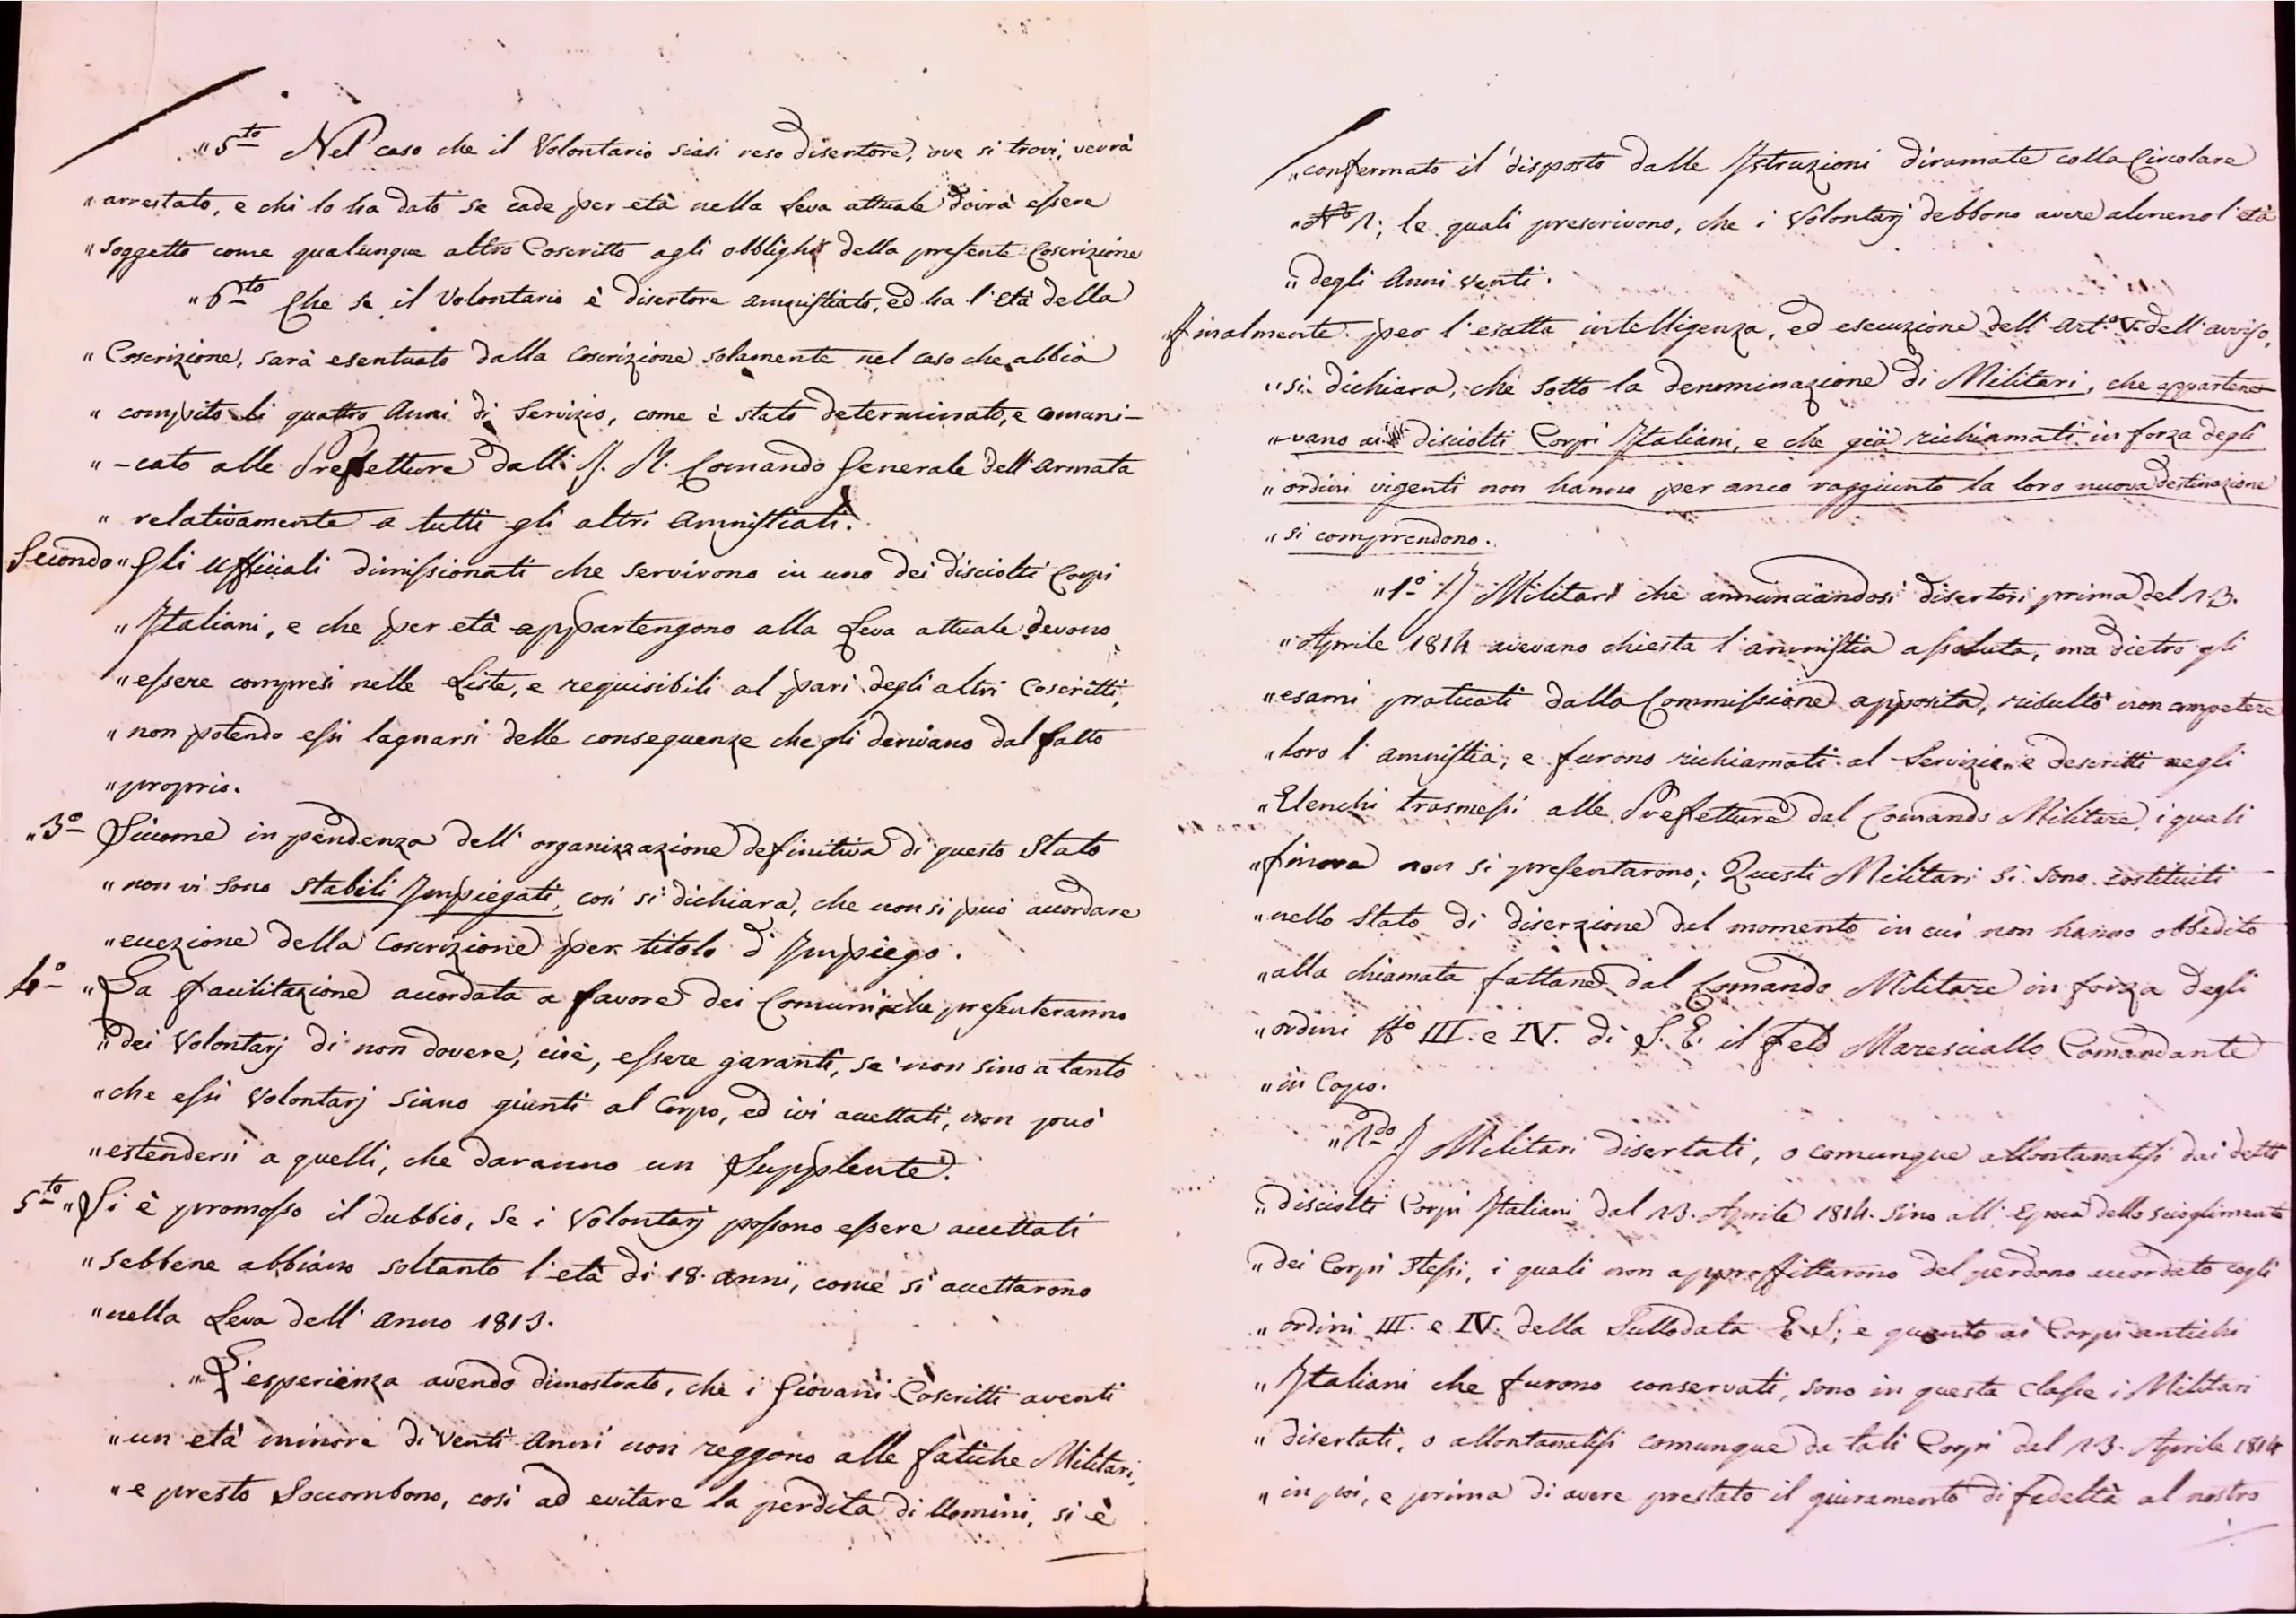 „5to Nel caso che il Volontario siasi reso disertore, ove si trovi, verrà
„arrestato, e chi lo ha dato se cade per età nella Leva attuale dovrà essere
„soggetto come qualunque altro Coscritto agli obblighi della presente Coscrizione
„6to Che se il Volontario è disertore amnistiato, ed ha l'età della
„Coscrizione, sarà esentuato dalla Coscrizione solamente nel caso che abbia
„compito li quattro Anni di Servizio, come è stato determinato, e comuni-
„-cato alle Prefetture dall' I. R. Comando Generale dell'Armata
„relativamente a tutti gli altri Amnistiati.
Secondo „Gli Ufficiali dimissionati che servirono in uno dei disciolti Corpi
„Italiani, e che per età appartengono alla Leva attuale devono
„essere compresi nelle Liste, e requisibili al pari degli altri Coscritti,
„non potendo essi lagnarsi delle conseguenze che gli derivano dal fatto
„proprio.
„3o Siccome in pendenza dell' organizzazione definitiva di questo Stato
„non vi sono stabili Impiegati, così si dichiara, che non si può accordare
„eccezione della Coscrizione per titolo d'Impiego.
4o „La facilitazione accordata a favore dei Comuni che presenteranno
„dei Volontarj di non dovere, cioè, essere garanti, se non sino a tanto
„che essi Volontarj siano giunti al Corpo, ed ivi accettati, non può
„estendersi a quelli, che daranno un Supplente.
5to „Si è promosso il dubbio, se i Volontarj possono essere accettati
„sebbene abbiano soltanto l'età di 18. anni, come si accettarono
„nella Leva dell' anno 1813.
„L'esperienza avendo dimostrato, che i Giovani Coscritti aventi
„un età minore di venti Anni non reggono alle fatiche Militari,
„e presto Soccombono, così ad evitare la perdita di Uomini, si è
„confermato il disposto dalle Istruzioni diramate colla Circolare
„No 1; le quali prescrivono, che i Volontarj debbono avere almeno l'età
„degli Anni venti.
„Finalmente per l'esatta intelligenza, ed esecuzione dell' Art.o V. dell'avviso,
„si dichiara, che sotto la denominazione di Militari, che apparten-
„-vano ai disciolti Corpi Italiani, e che già richiamati in forza degli
„ordini vigenti non hanno per anco raggiunto la loro nuova destinazione
„si comprendono.
„1o I Militari che annunciandosi disertori prima del 23.
„Aprile 1814 avevano chiesta l'amnistia assoluta, ma dietro gli
„esami praticati dalla Commissione apposita, risultò non competere
„loro l'amnistia, e furono richiamati al Servizio, e descritti negli
„Elenchi trasmessi alle Prefetture dal Comando Militare, i quali
„finora non si presentarono; Questi Militari si sono costituiti
„nello Stato di diserzione dal momento in cui non hanno obbedito
„alla chiamata fattane dal Comando Militare in forza degli
„ordini No III. e IV. di S. E. il Feld Maresciallo Comandante
„in Capo.
„2do I Militari disertati, o comunque allontanatisi dai detti
„disciolti Corpi Italiani dal 23. Aprile 1814. sino all' Epoca dello scioglimento
„dei Corpi stessi, i quali non approffittarono del perdono accordato cogli
„ordini III. e IV. della Sullodata E. S; e quanto ai Corpi antichi
„Italiani che furono conservati, sono in questa classe i Militari
„disertati, o allontanatisi comunque da tali Corpi dal 23. Aprile 1814
„in poi, e prima di avere prestato il giuramento di fedeltà al nostro